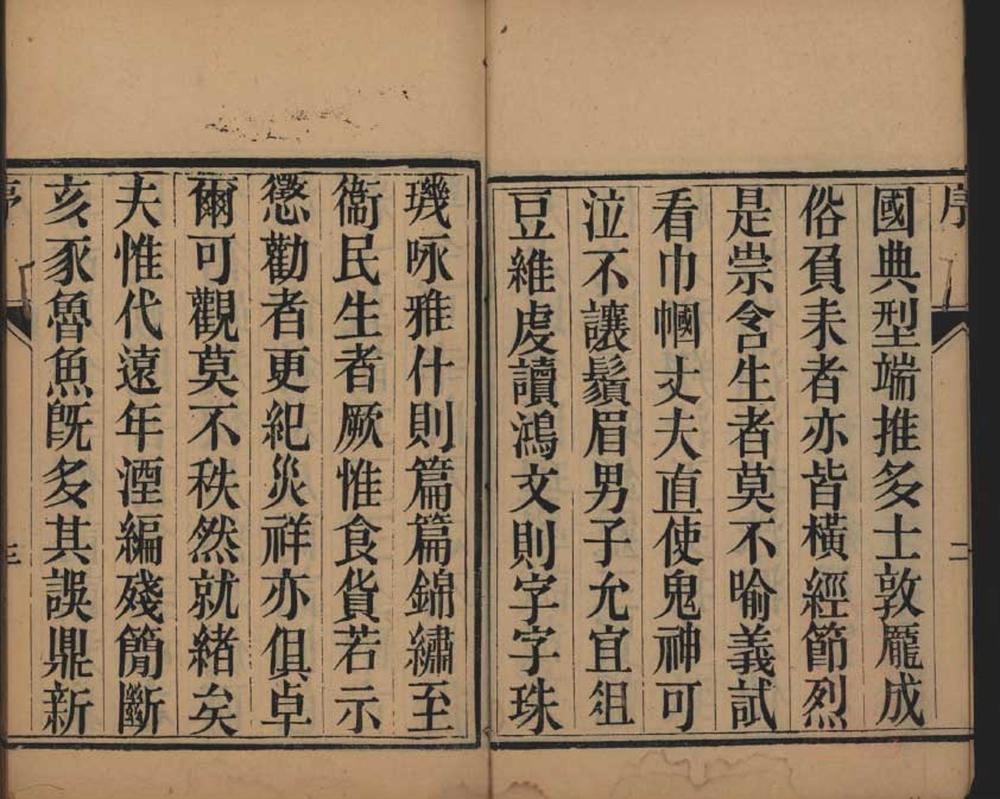 序
二
國典型端推多士敦龐成
俗負耒者亦皆橫經節烈
是崇含生者莫不喻義試
看巾幗丈夫直使鬼神可
泣不讓鬚眉男子允宜俎
豆維虔讀鴻文則字字珠
璣咏雅什則篇篇錦繡至
衞民生者厥惟食貨若示
懲勸者更紀災祥亦俱卓
爾可觀莫不秩然就緒矣
夫惟代遠年湮編殘簡斷
亥豕魯魚旣多其誤鼎新
序
三